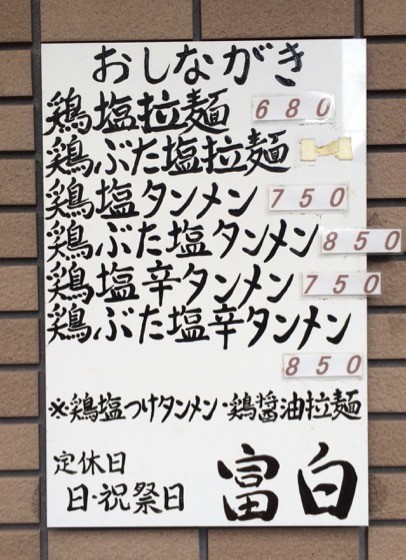 おしながき
鶏塩拉麺 680
鶏ぶた塩拉麺
鶏塩タンメン 750
鶏ぶた塩タンメン 850
鶏塩辛タンメン 750
鶏ぶた塩辛タンメン
850
※鶏塩つけタンメン・鶏醤油拉麺
定休日
日・祝祭日
富白